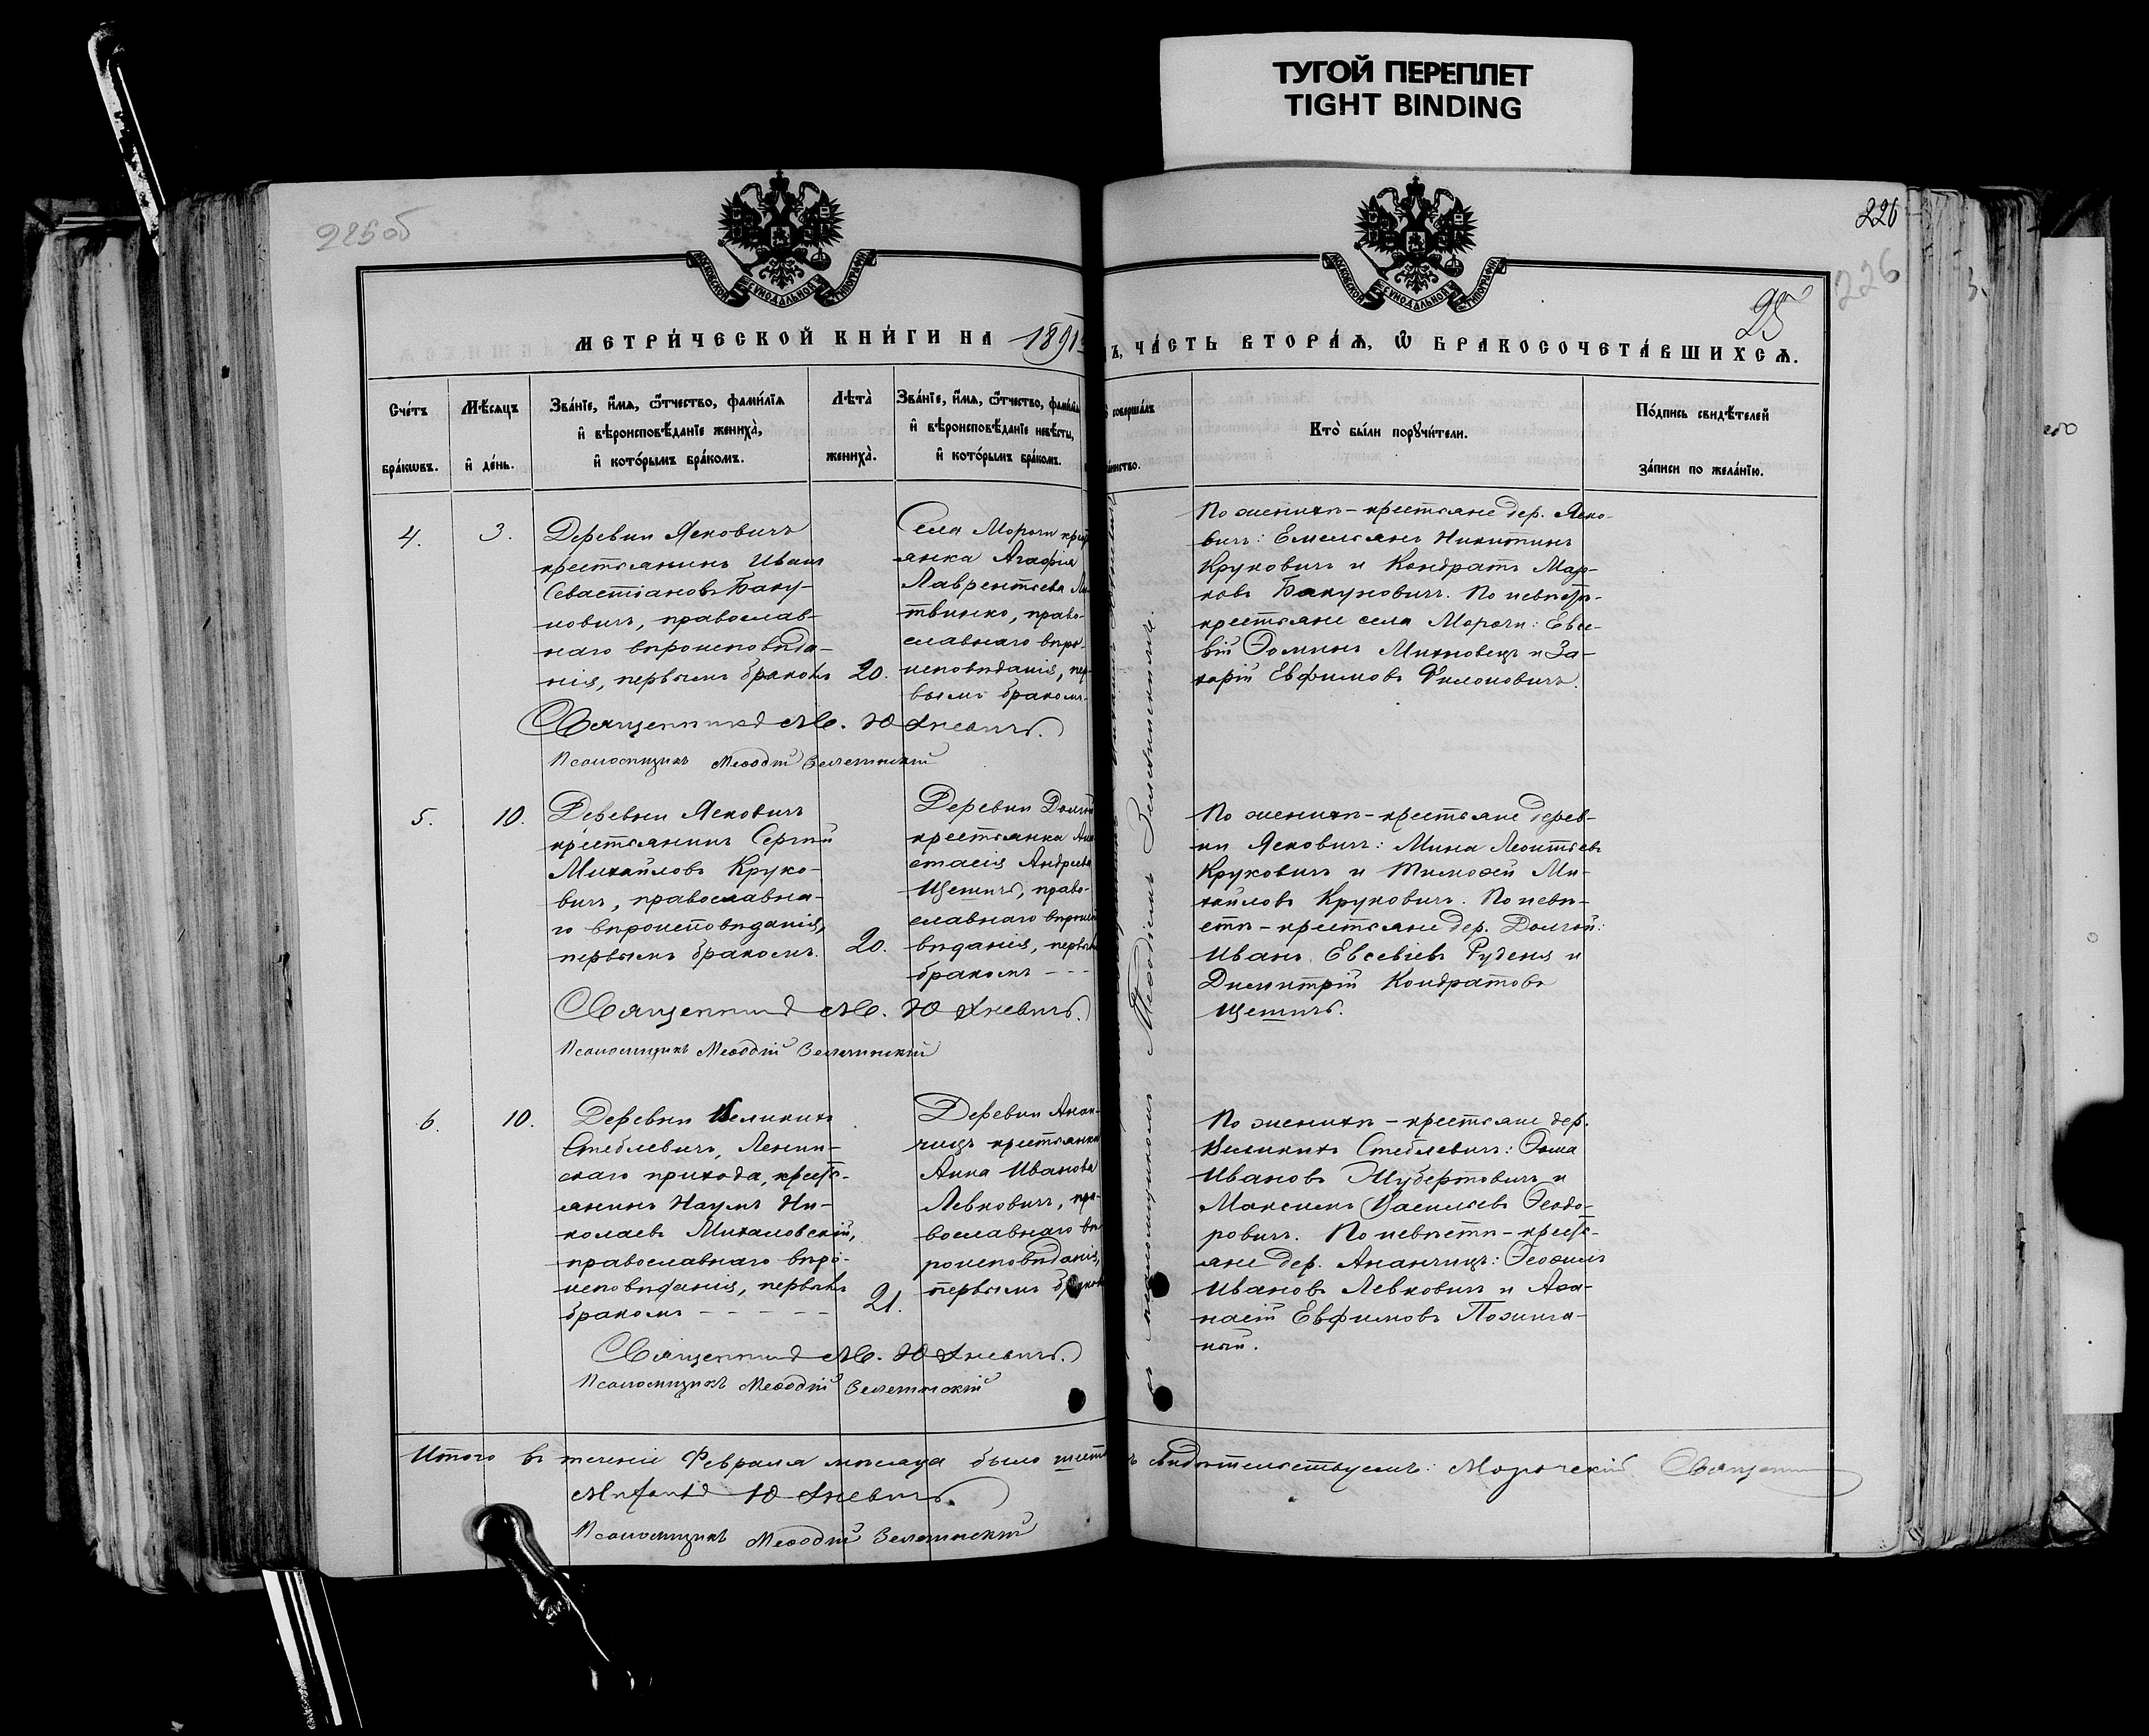 ТУГОЙ ПЕРЕПЛЕТ
TIGHT BINDING
225об
226
226
25
МОСКОВСКОЙ СѴНОДАЛЬНОЙ ТИПОГРАФІИ
МОСКОВСКОЙ СѴНОДАЛЬНОЙ ТИПОГРАФІИ
МЕТРИ́ЧЕСКОЙ КНИ́ГИ НА 1891
Ъ, ЧА́СТЬ ВТОРА́Ѧ, Ѽ БРАКОСОЧЕТА́ВШИХСѦ.
Сче́тъ бра́кѡвъ.
Мѣ́сѧцъ и҆ де́нь.
Зва́нїе, и҆́мѧ, ѻ҆́тчество, фами́лїѧ
и҆ вѣроисповѣ́данїе жениха̀,
и҆ кото́рымъ бра́комъ.
Лѣта̀ жениха̀.
Зва́нїе, и҆́мѧ, ѻ҆́тчество, фами́лїѧ
и҆ вѣроисповѣ́данїе невѣ́сты,
и҆ кото́рымъ бра́комъ.
соверша́лъ
Кто̀ бы́ли порꙋчи́тели.
По́дпись свидѣ́телей
за́писи по жела́нїю.
4.
3.
Деревни Ясковичъ
крестьянинъ Иванъ
Севастіановъ Баку-
новичъ, православ-
наго вѣроисповѣда-
нія, первымъ бракомъ
20.
Села Морочи крест
янка Агафія
Лаврентьева Ли
твинко, право-
славнаго вѣро-
исповѣданія, пер-
вымъ бракомъ.
По женихѣ – крестьяне дер. Яско-
вичъ: Емельянъ Никитинъ
Круковичъ и Кондратъ Мар-
ковъ Бакуновичъ. По невѣстѣ-
крестьяне села Морочи: Евсе-
вій Ѳоминъ Михновецъ и За-
харій Евфимовъ Филоновичъ.
Священникъ М. Юхневичъ.
Псаломщикъ Меѳодій
5.
10.
Деревни Ясковичъ
крестьянинъ Сергій
Михайловъ Круко-
вичъ, православна-
го вѣроисповѣданія,
первымъ бракомъ.
20.
Деревни Долгой
крестьянка Ана
стасія Андреева
Щешичъ, право-
славнаго вѣроиспо
вѣданія, первымъ
бракомъ - - -
По женихѣ – крестьяне дерев-
ни Ясковичъ: Мина Леонтьевъ
Круковичъ и Тимоѳей Ми-
хайловъ Круковичъ. По невѣ-
стѣ – крестьяне дер. Долгой:
Иванъ Евсевіевъ Руденя и
Димитрій Кондратовъ
Щешичъ.
Священникъ М. Юхневичъ.
Псаломщикъ Меѳодій
6.
10.
Деревни Великихъ
Стеблевичъ, Ленин-
скаго прихода, кресть-
янинъ Наумъ Ни-
колаевъ Михаловскій,
православнаго вѣро-
исповѣданія, первымъ
бракомъ - - - - -
21.
Деревни Анан-
чицъ крестьянка
Анна Иванова
Левковичъ, пра-
вославнаго вѣ
роисповѣданія,
первымъ бракомъ
По женихѣ – крестьяне дер.
Великихъ Стеблевичъ: Ѳома
Ивановъ Шубертовичъ и
Максимъ Васильевъ Ѳеодо-
ровичъ. По невѣстѣ – кресть-
яне дер. Ананчицъ: Ѳеофилъ
Ивановъ Левковичъ и Аѳа-
насій Евфимовъ
Священникъ М. Юхневичъ.
Псаломщикъ Меѳодій
съ псаломщикомъ Меѳодіемъ
Итого въ теченіе Февраля мѣсяца было шесть
свидѣтельствуемъ: Морочскій Священни
Юхневичъ.
Псаломщикъ Меѳодій